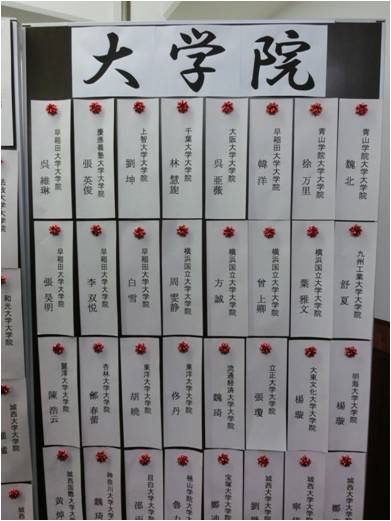 大学院
早稲田大学大学院 呉維琳
慶應義塾大学大学院 張英俊
上智大学大学院 劉坤
千葉大学大学院 林慧旎
大阪大学大学院 呉亜薇
早稲田大学大学院 韓洋
青山学院大学大学院 徐万里
青山学院大学大学院 魏北
早稲田大学大学院 張昊明
早稲田大学大学院 李双悦
早稲田大学大学院 白雪
横浜国立大学大学院 周雯静
横浜国立大学大学院 方誠
横浜国立大学大学院 曾上卿
横浜国立大学大学院 葉雅文
九州工業大学大学院 舒夏
麗澤大学大学院 陳浩云
杏林大学大学院 郝春蕾
東洋大学大学院 胡曉
東洋大学大学院 佟丹
流通経済大学大学院 魏琦
立正大学大学院 張瓊
大東文化大学大学院 楊璇
明海大学大学院 楊璇
城西国際大学大学院 黄
神奈川大学大学院 魏琦
目白大学大学院
大学大学院 魯
宝塚大学大学院
城西大学大学院 劉
城西大学大学院 寧
城西大学大学院
和光大学大学院
城西大学大学院